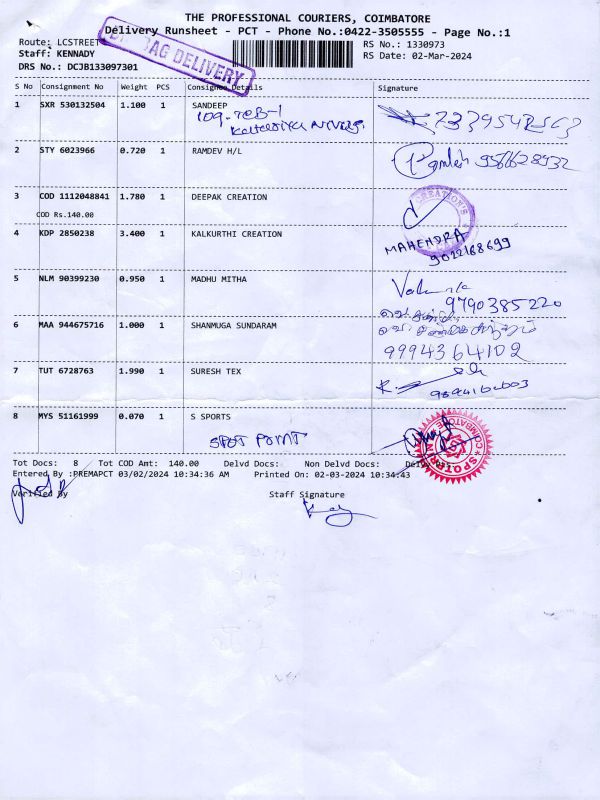 THE PROFESSIONAL COURIERS, COIMBATORE
Delivery Runsheet - PCT - Phone No.:0422-3505555 - Page No.:1
Route: LCSTREET RS No.: 1330973
Staff: KENNADY RS Date: 02-Mar-2024
DRS No.: DCJB133097301
DELIVERY
S No Consignment No Weight PCS Consignee Details Signature
1 SXR 530132504 1.100 1 SANDEEP
2 STY 6023966 0.720 1 RAMDEV H/L
3 COD 1112048841 1.780 1 DEEPAK CREATION
COD Rs.140.00
4 KDP 2850238 3.400 1 KALKURTHI CREATION
MAHENDRA
9022168699
5 NLM 90399230 0.950 1 MADHU MITHA
9790385220
6 MAA 944675716 1.000 1 SHANMUGA SUNDARAM
9994364102
7 TUT 6728763 1.990 1 SURESH TEX
8 MYS 51161999 0.070 1 S SPORTS
SPOT POINT
Tot Docs: 8 Tot COD Amt: 140.00 Delvd Docs: Non Delvd Docs:
Entered By :PREMAPCT 03/02/2024 10:34:36 AM Printed On: 02-03-2024 10:34:43
Verified By Staff Signature